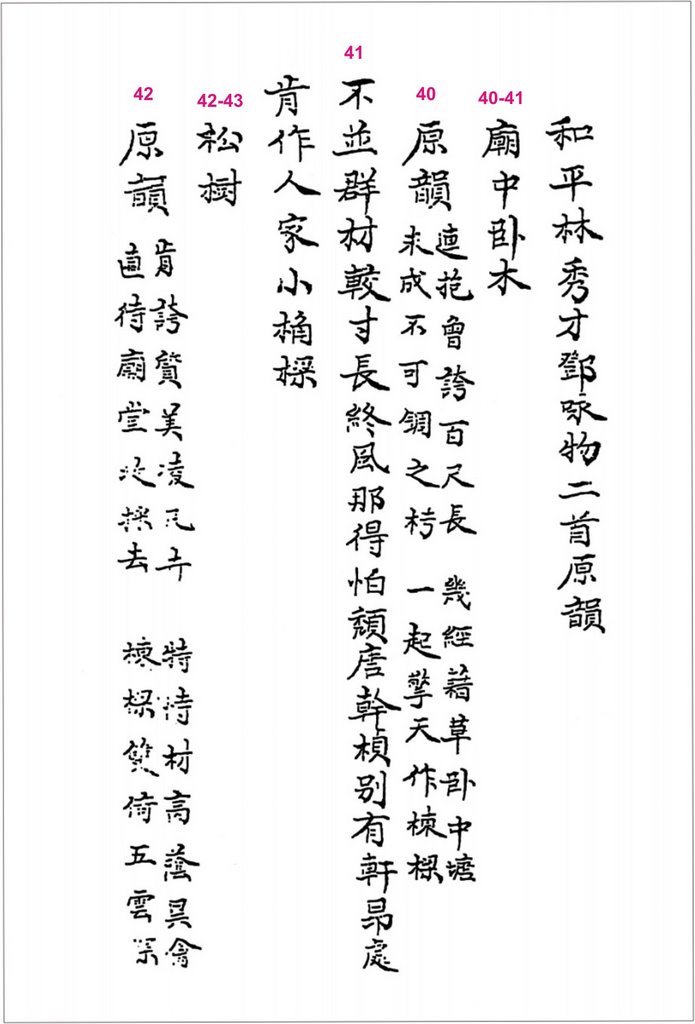 和平林秀才鄧咏物二首原韻
40-41
廟中卧木
40
原韻
連抱曾誇百尺長 幾經藉草卧中塘
成不可之 一起擎天作棟樑
41
不並群材較寸長終風那得怕頹唐幹楨别有軒昂處
肯作人家小桷樑
42-43
松樹
42
原韻
肯誇質美凌凡卉 特恃材高蔭異禽
直待廟堂收採去 棟樑倚五雲深